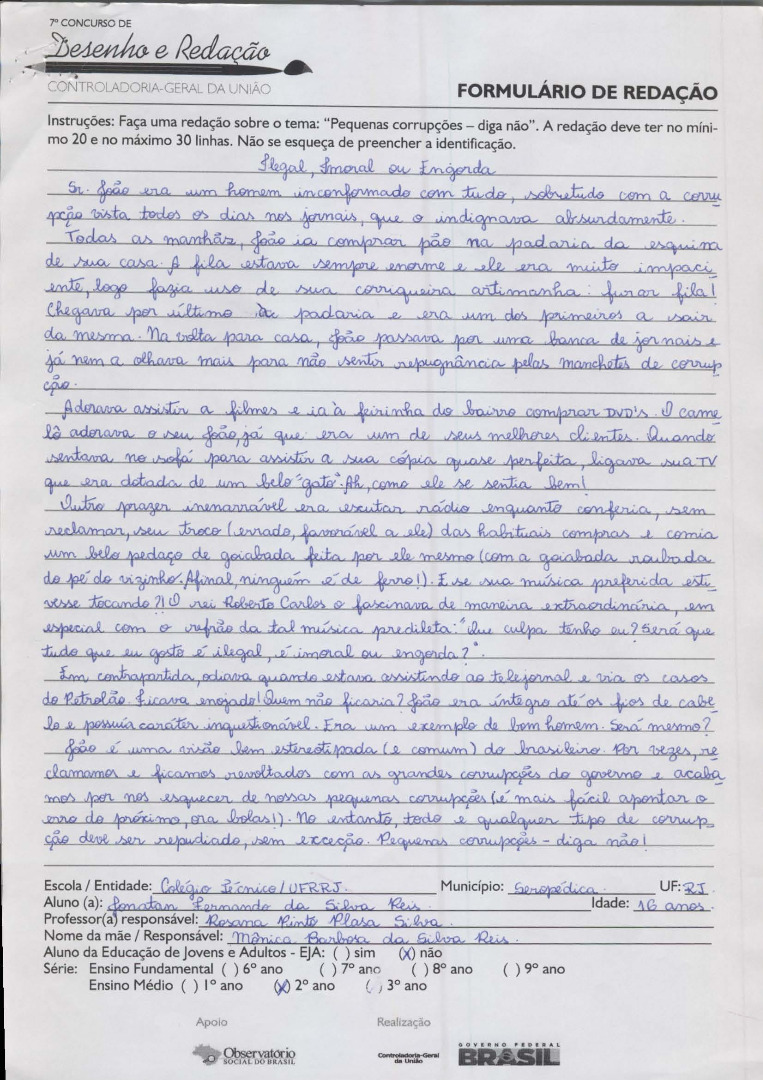 7º CONCURSO DE
Desenho e Redação
CONTROLADORIA-GERAL DA UNIÃO
FORMULÁRIO DE REDAÇÃO
Instruções: Faça uma redação sobre o tema: “Pequenas corrupções – diga não”. A redação deve ter no míni-
mo 20 e no máximo 30 linhas. Não se esqueça de preencher a identificação.
Ilegal, Imoral ou Engorda
Sr. João era um homem inconformado com tudo, sobretudo com a corru
pção vista todos os dias nos jornais, que o indignava absurdamente.
Todas as manhãs, João ia comprar pão na padaria da esquina
de sua casa. A fila estava sempre enorme e ele era muito impaci
ente, logo fazia uso de sua corriqueira artimanha: furar fila!
Chegava por último à padaria e era um dos primeiros a sair
da mesma. Na volta para casa, João passava por uma banca de jornais e
já nem a olhava mais para não sentir repugnância pelas manchetes de corrup
ção.
Adorava assistir a filmes e ia à feirinha do bairro comprar DVD's. O came
lô adorava o seu João, já que era um de seus melhores clientes. Quando
sentava no sofá para assistir a sua cópia quase perfeita, ligava sua TV
que era dotada de um belo "gato". Ah, como ele se sentia bem!
Outro prazer inenarrável era escutar rádio enquanto conferia, sem
reclamar, seu troco (errado, favorável a ele) das habituais compras e comia
um belo pedaço de goiabada feita por ele mesmo (com a goiabada roubada
do pé do vizinho. Afinal, ninguém é de ferro!). E se sua música preferida esti
vesse tocando?! O rei Roberto Carlos o fascinava de maneira extraordinária, em
especial com o refrão da tal música predileta: "Que culpa tenho eu? Será que
tudo que eu gosto é ilegal, é imoral ou engorda?".
Em contrapartida, odiava quando estava assistindo ao telejornal e via os casos
do Petrolão. Ficava enojado! Quem não ficaria? João era íntegro até os fios de cabe
lo e possuía caráter inquestionável. Era um exemplo de bom homem. Será mesmo?
João é uma visão bem estereotipada (e comum) do brasileiro. Por vezes, re
clamamos e ficamos revoltados com as grandes corrupções do governo e acaba
mos por nos esquecer de nossas pequenas corrupções (é mais fácil apontar o
erro do próximo, ora bolas!). No entanto, todo e qualquer tipo de corrup
ção deve ser repudiado, sem exceção. Pequenas corrupções - diga não!
Escola / Entidade: Colégio Técnico/UFRRJ. Município: Seropédica. UF: RJ
Aluno (a): Jonatan Fernando da Silva Reis. Idade: 16 anos.
Professor(a) responsável: Rosana Pinto Plasa Silva.
Nome da mãe / Responsável: Mônica Barbosa da Silva Reis.
Aluno da Educação de Jovens e Adultos - EJA: ( ) sim (X) não
Série: Ensino Fundamental ( ) 6º ano ( ) 7º ano ( ) 8º ano ( ) 9º ano
Ensino Médio ( ) 1º ano (X) 2º ano ( ) 3º ano
Apoio Realização
Observatório
SOCIAL DO BRASIL
Controladoria-Geral
da União
GOVERNO FEDERAL
BRASIL